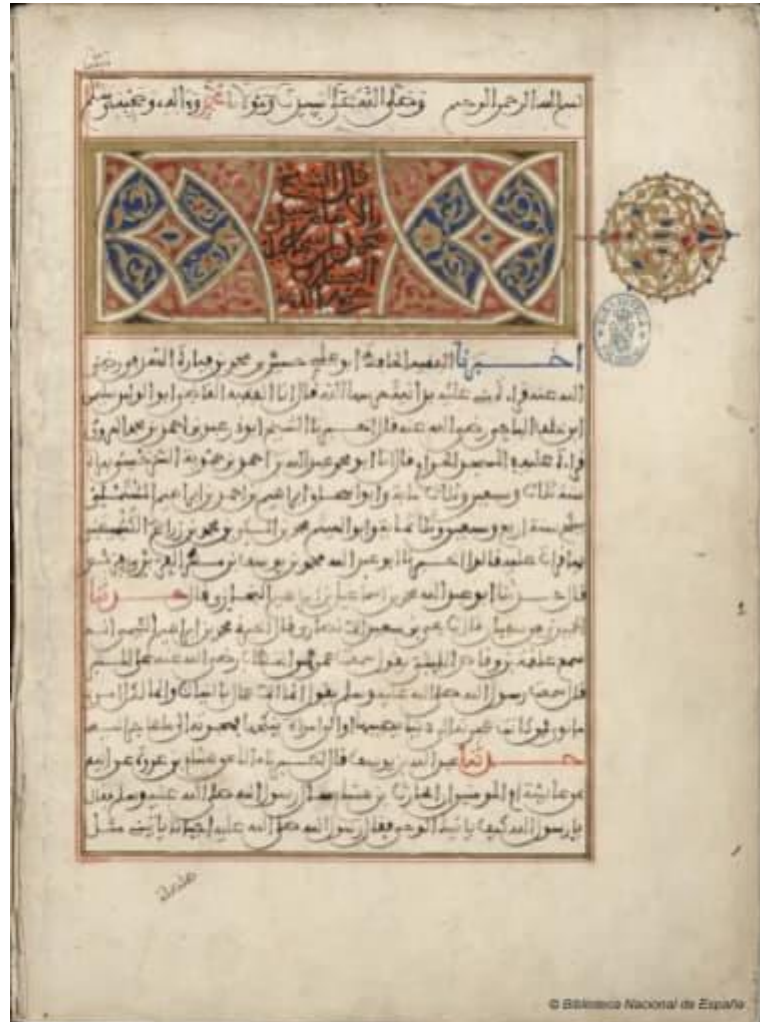 بسم الله الرحمن الرحيم وصلى الله على سيدنا ومولانا محمد وءاله وصحبه وسلم
قال الشيخ
الامام
محمد بن اسماعيل
البخاري
رحمه الله
اخبرنا الفقيه الحافظ ابو علي حسين بن محمد بن
الله عنه قراءة عليه قال انا الفقيه القاضي ابو الوليد سليمن
ابن خلف الباجي رضي الله عنه قال اخبرنا الشيخ ابو ذر عبد بن احمد بن محمد الهروي
قراءة عليه قال انا ابو محمد عبد الله بن احمد بن حمويه السرخسي
سنة ثلاث وسبعين وثلاث ماية وابو اسحاق ابراهيم بن احمد بن ابراهيم المستملي
سنة اربع وسبعين وثلاث ماية وابو الهيثم محمد بن المكي بن محمد بن زراع الكشميهني
قراءة عليه قالوا اخبرنا ابو عبد الله محمد بن يوسف بن مطر الفربري
قال حدثنا ابو عبد الله محمد بن اسماعيل بن ابراهيم البخاري قال حدثنا
الحميدي عن سفيان قال نا يحيى بن سعيد الانصاري قال اخبرني محمد بن ابراهيم التيمي انه
سمع علقمة بن وقاص الليثي يقول سمعت عمر بن الخطاب رضي الله عنه على المنبر
قال سمعت رسول الله صلى الله عليه وسلم يقول انما الاعمال بالنيات وانما لكل امرئ
ما نوى فمن كانت هجرته الى دنيا يصيبها او الى امراة ينكحها فهجرته الى ما هاجر اليه
حدثنا عبد الله بن يوسف قال اخبرنا مالك عن هشام بن عروة عن ابيه
عن عائشة ام المومنين ان الحارث بن هشام سال رسول الله صلى الله عليه وسلم فقال
يا رسول الله كيف ياتيك الوحي فقال رسول الله صلى الله عليه احيانا ياتيني مثل
صلصلة
© Biblioteca Nacional de España